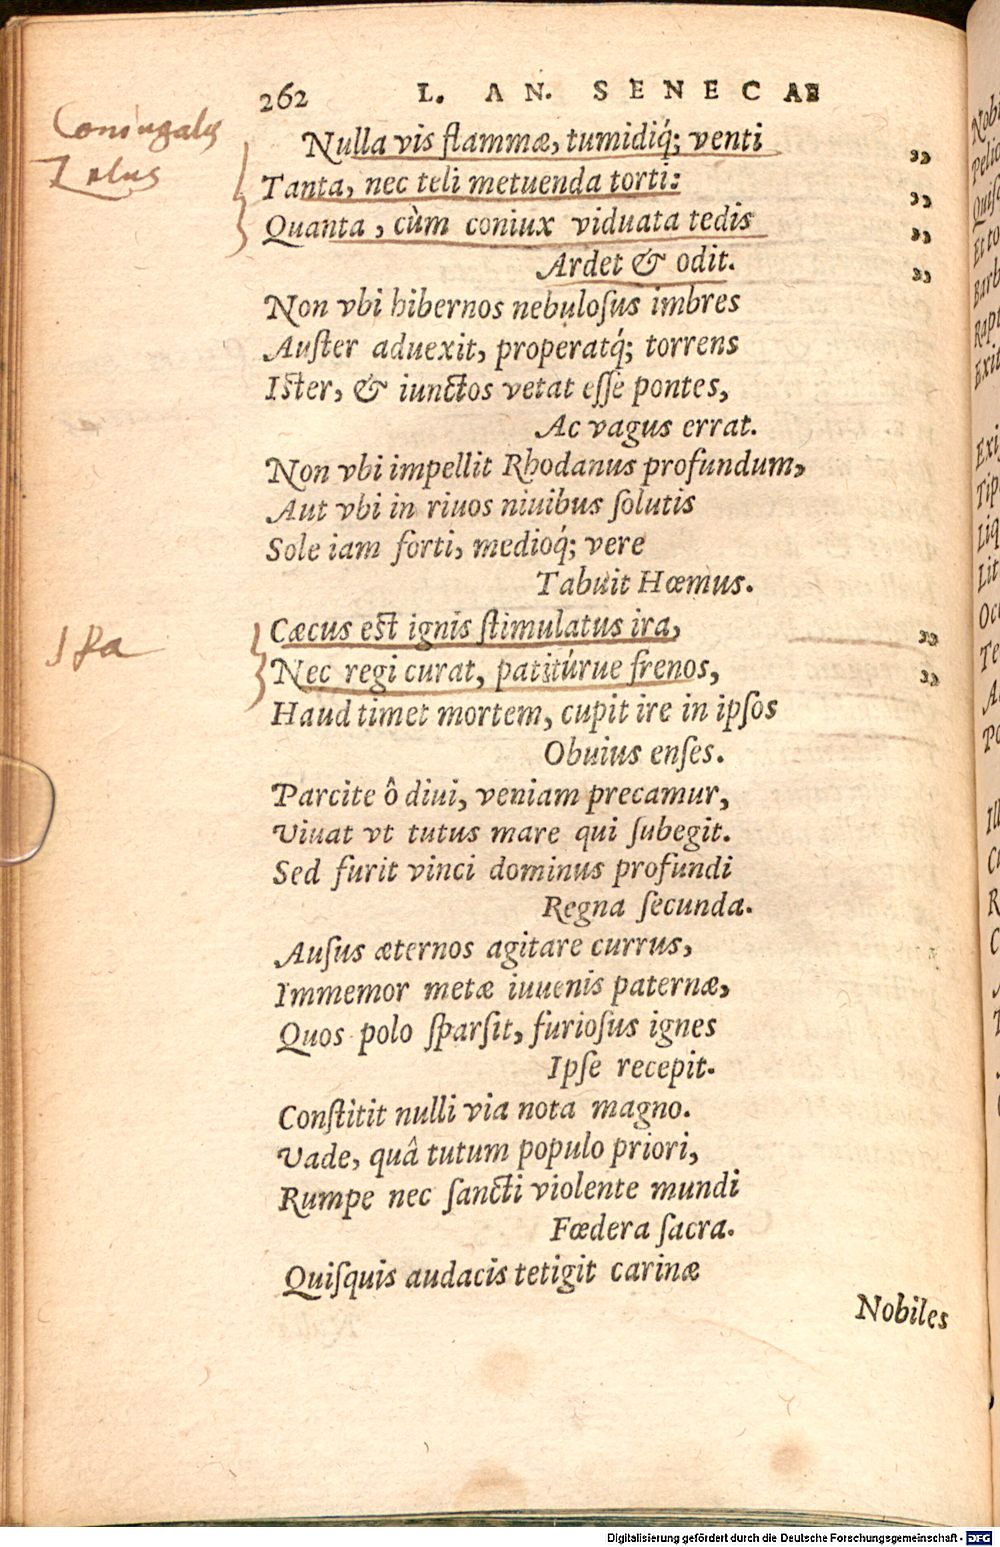 262 L. AN. SENECAE
Coniugalis
Zelus
Nulla vis flammæ, tumidiq́; venti ”
Tanta, nec teli metuenda torti: ”
Quanta, cùm coniux viduata tedis ”
Ardet & odit. ”
Non vbi hibernos nebuloſus imbres
Auſter aduexit, properatq́; torrens
Iſter, & iunctos vetat eſſe pontes,
Ac vagus errat.
Non vbi impellit Rhodanus profundum,
Aut vbi in riuos niuibus ſolutis
Sole iam forti, medioq́; vere
Tabuit Hœmus.
Ira
Cæcus eſt ignis ſtimulatus ira, ”
Nec regi curat, patitúrue frenos, ”
Haud timet mortem, cupit ire in ipſos
Obuius enſes.
Parcite ô diui, veniam precamur,
Viuat vt tutus mare qui ſubegit.
Sed furit vinci dominus profundi
Regna ſecunda.
Auſus æternos agitare currus,
Immemor metæ iuuenis paternæ,
Quos polo ſparſit, furioſus ignes
Ipſe recepit.
Conſtitit nulli via nota magno.
Vade, quâ tutum populo priori,
Rumpe nec ſancti violente mundi
Fœdera ſacra.
Quiſquis audacis tetigit carinæ
Nobiles
Digitalisierung gefördert durch die Deutsche Forschungsgemeinschaft - DFG